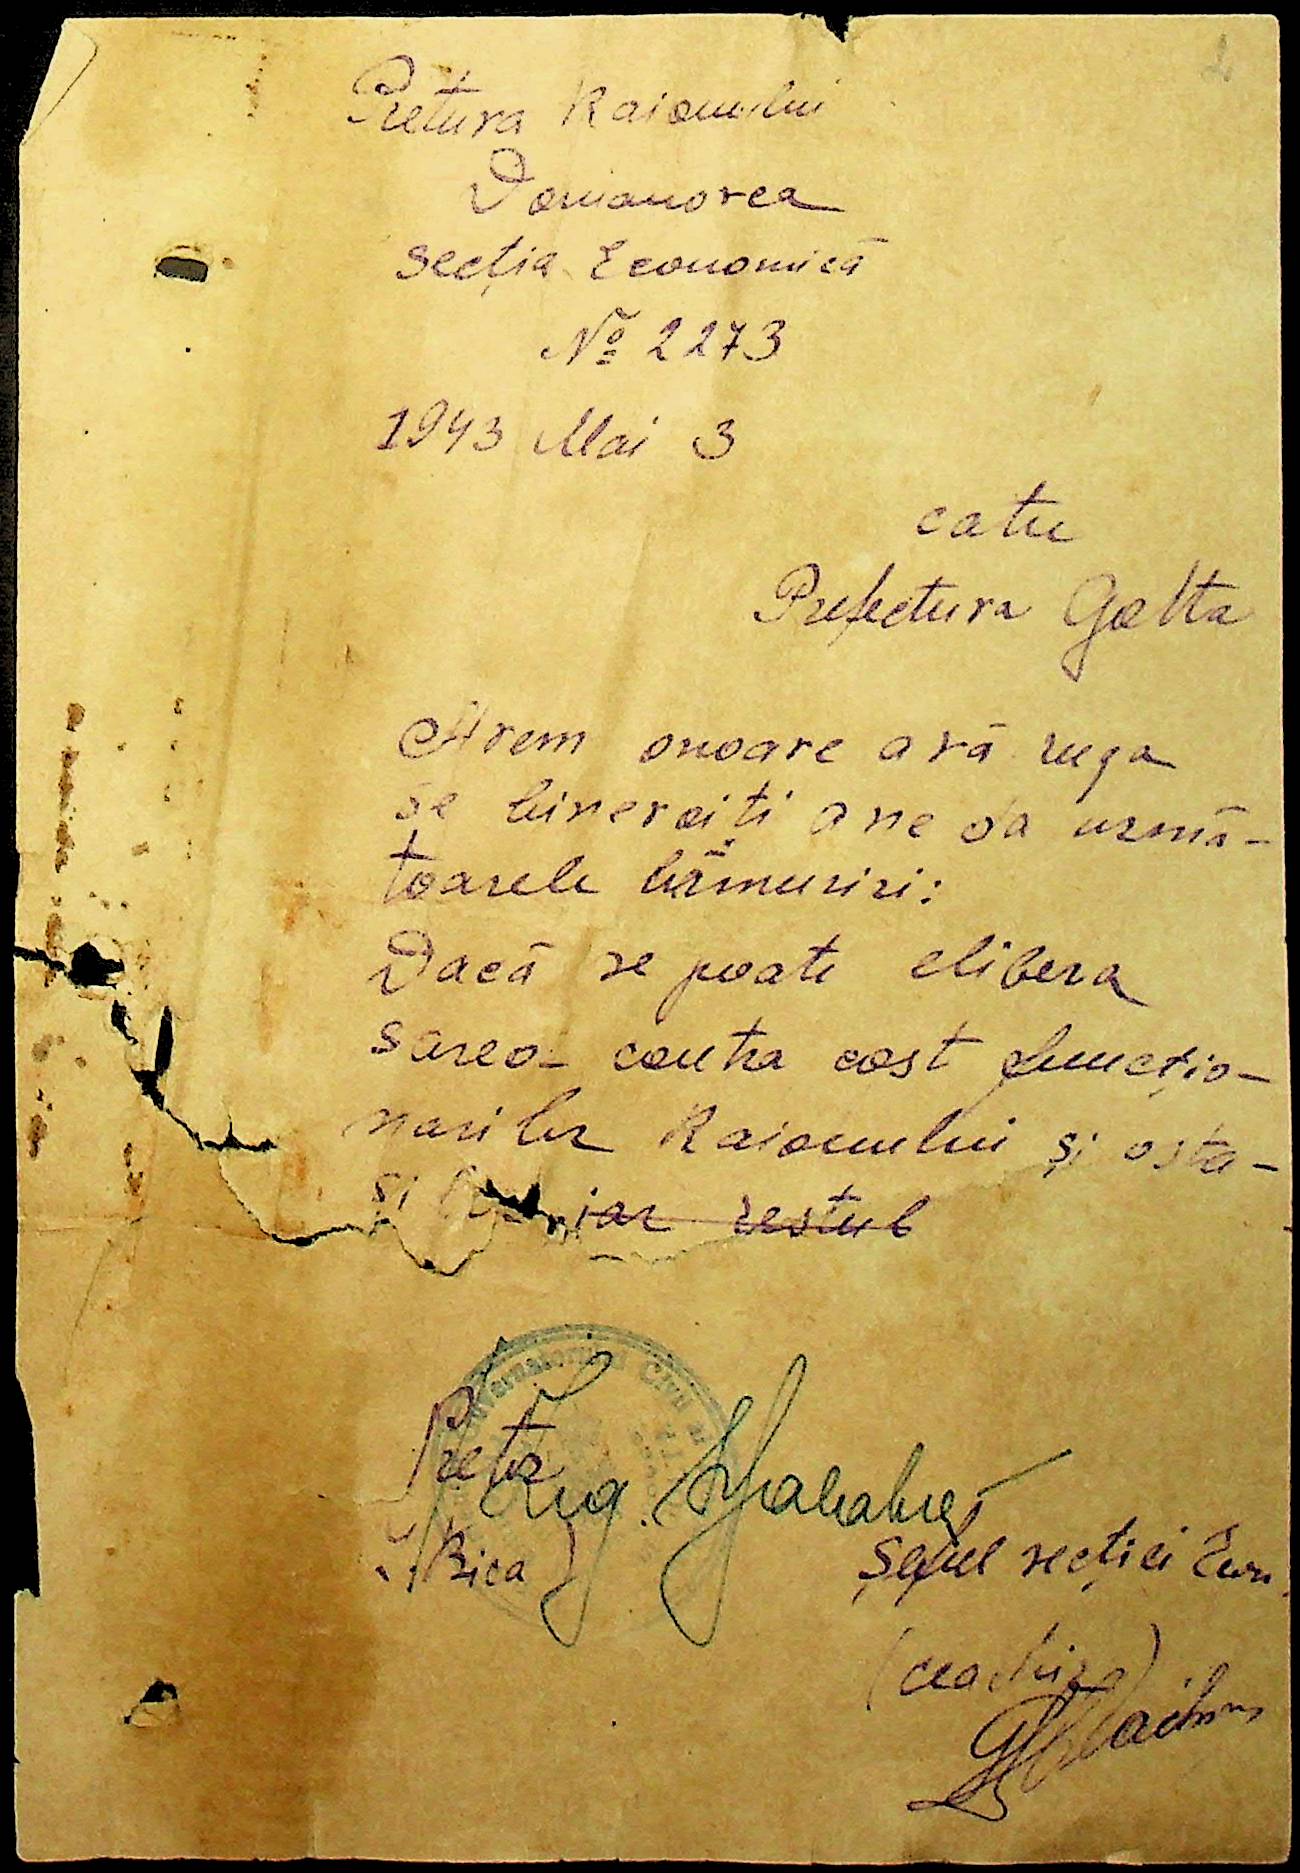 2
Pretura Raionului
Domanovca
Secția Economică
№ 2273
1943 Mai 3
catre
Prefectura Golta
Avem onoare avă ruga
se binevoiți a ne da urmă-
toarele lămuriri:
Dacă se poate elibera
sarea contra cost funcțio-
narilor Raionului și osta-
și iar restul
Civil
Pretor
Bica
Șeful secției Econ.